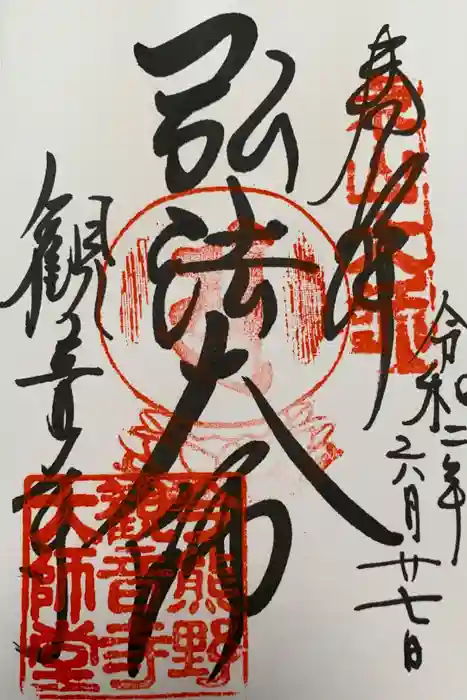 奉拝
令和二年
六月廿七日
弘法大師
観音寺
今熊野
観音寺
大師堂